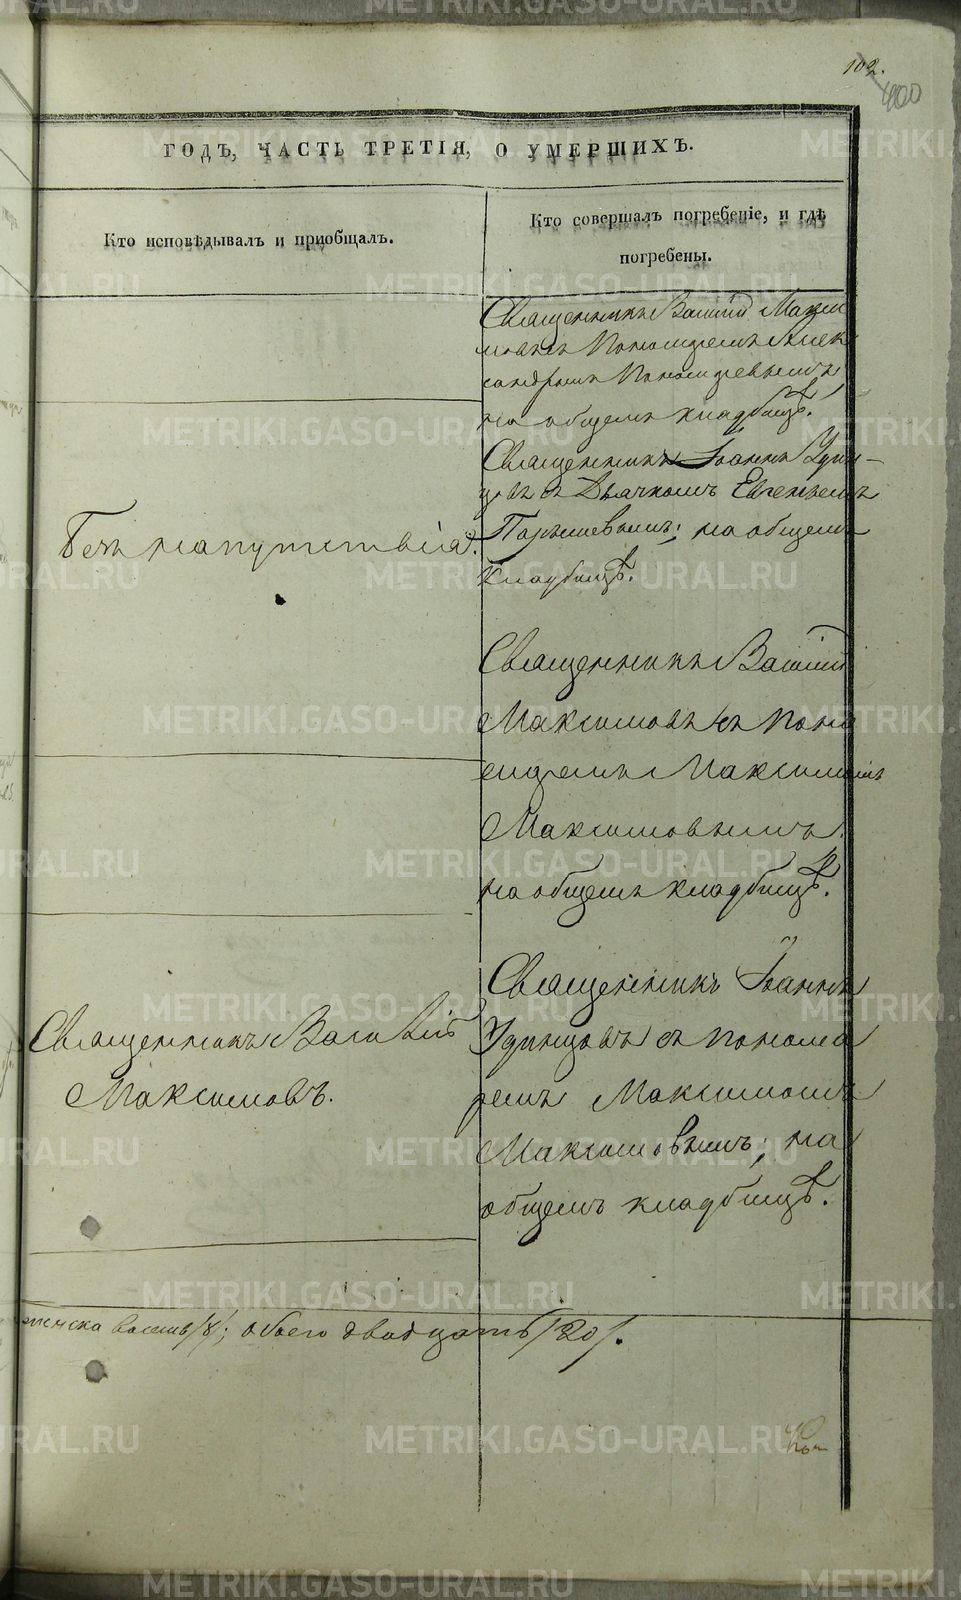 102.
400
ГОДЪ, ЧАСТЬ ТРЕТІЯ, О УМЕРШИХЪ.
Кто исповѣдывалъ и пріобщалъ.
Кто совершалъ погребеніе, и гдѣ
погребены.
Священникъ Василій Макси
мовъ съ Пономаремъ Алек
сандромъ Пономаревымъ
на общемъ кладбищѣ.
Священникъ Іоаннъ Удин-
цовъ съ Дьячкомъ Евгеньемъ
на общемъ
кладбищѣ.
Безъ напутствія.
Священникъ Василій
Максимовъ съ Поно
маремъ Максимомъ
Максимовымъ
на общемъ кладбищѣ.
Священникъ Василій
Максимовъ.
Священникъ Іоаннъ
Удинцовъ съ понома
ремъ Максимомъ
Максимовымъ; на
общемъ кладбищѣ.
женска восемь /8/; обоего двадцать /20/.
METRIKI.GASO-URAL.RU